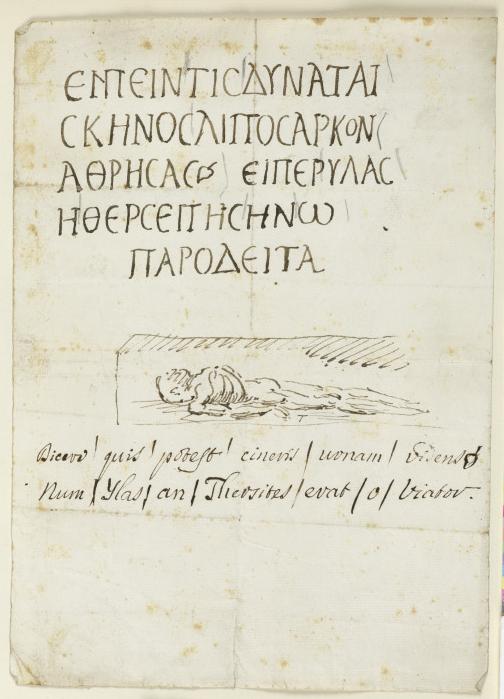 ΕΙΠΕΙΝΤΙϹΔΥΝΑΤΑΙ
ϹΚΗΝΟϹΛΙΠΟϹΑΡΚΟΝ
ΑΘΡΗϹΑϹ ΕΙΠΕΡΥΛΑϹ
ΗΘΕΡϹΕΙΤΗϹΗΝΩ
ΠΑΡΟΔΕΙΤΑ
Dicere / quis / potest / cineris / urnam / videns
Num / Ylas / an / Thersites / erat / o / Viator.